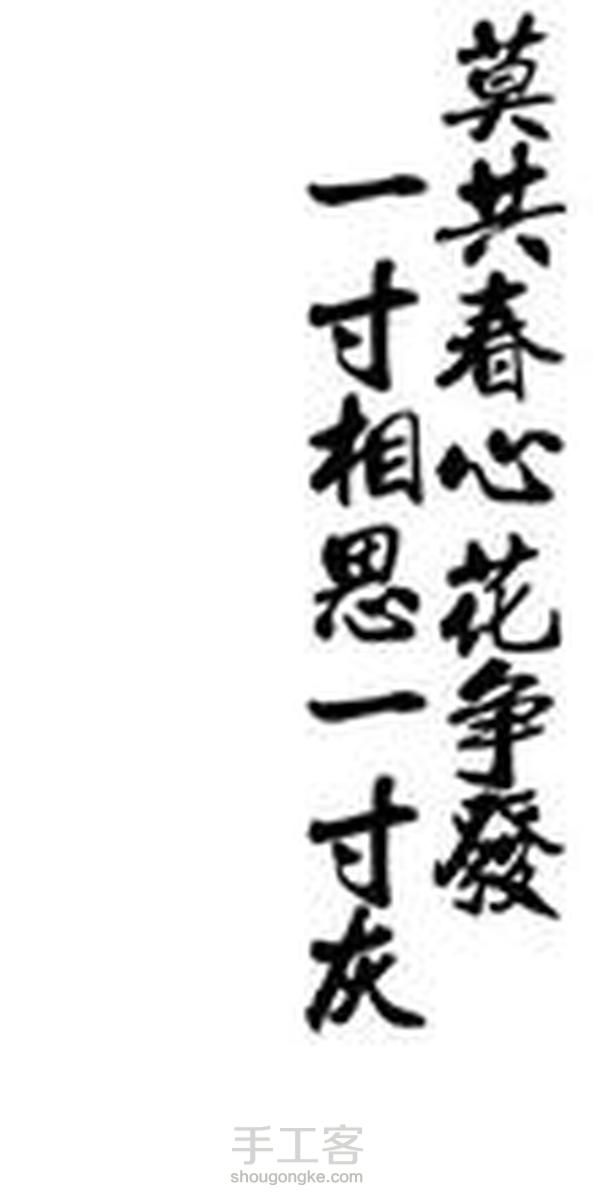 莫共春心花争發
一寸相思一寸灰
手工客
shougongke.com